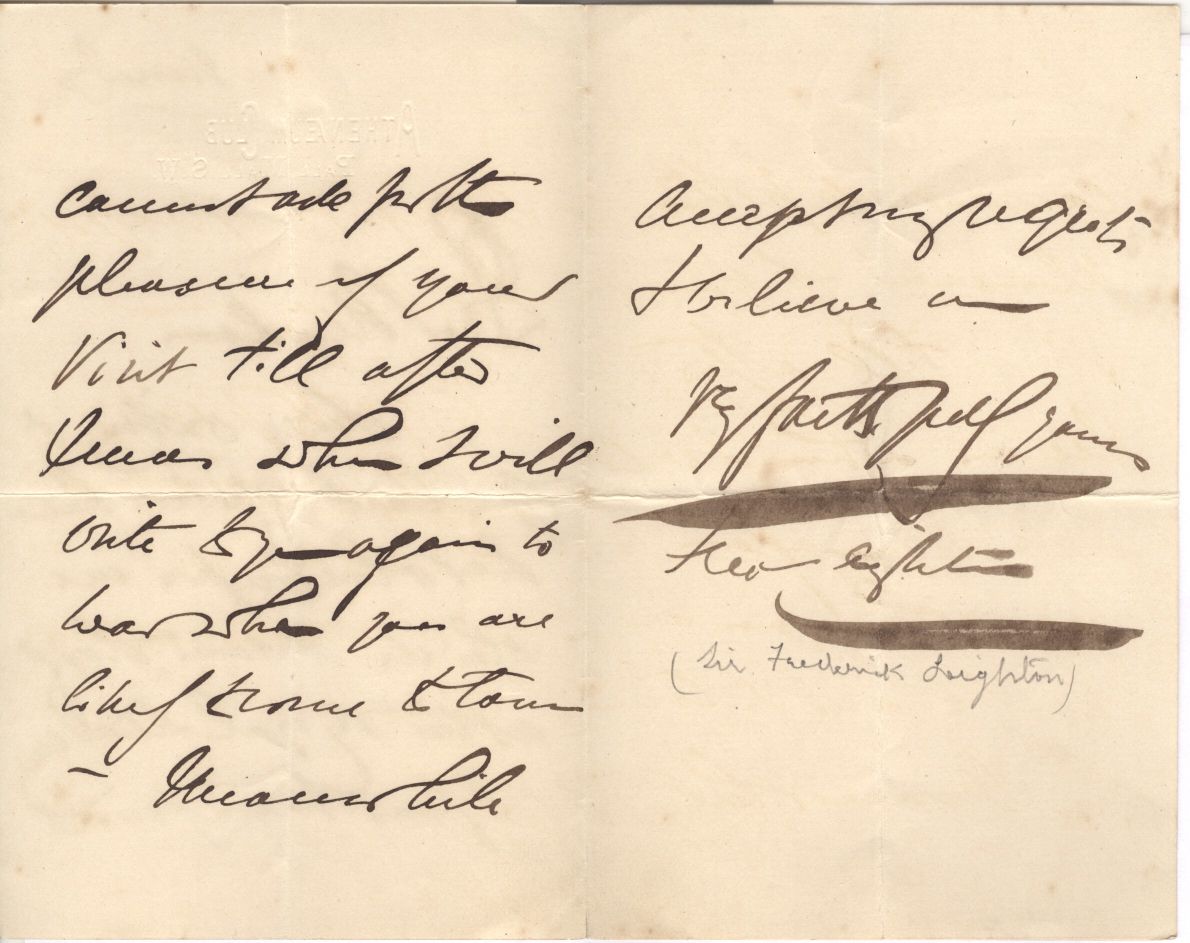 cannot ask for the
pleasure of your
visit till after
Xmas when I will
write to you again to
hear when you are
likely to come to town
— Meanwhile
Accepting regrets
I believe me
Vy faithfully yours
Fred Leighton
(Sir Frederick Leighton)
ATHENAEUM CLUB
PALL MALL S.W.